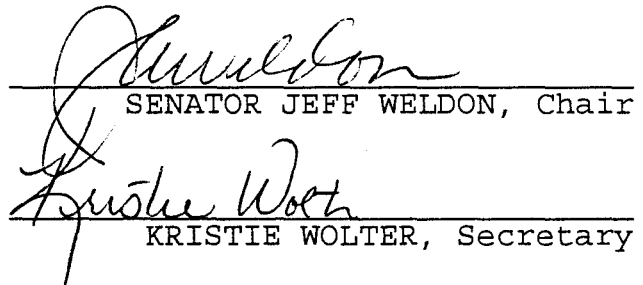 JWeldon
SENATOR JEFF WELDON, Chair
Kristie Wolter
KRISTIE WOLTER, Secretary